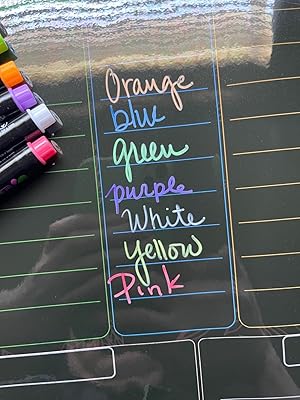 Orange
blue
green
purple
White
yellow
Pink